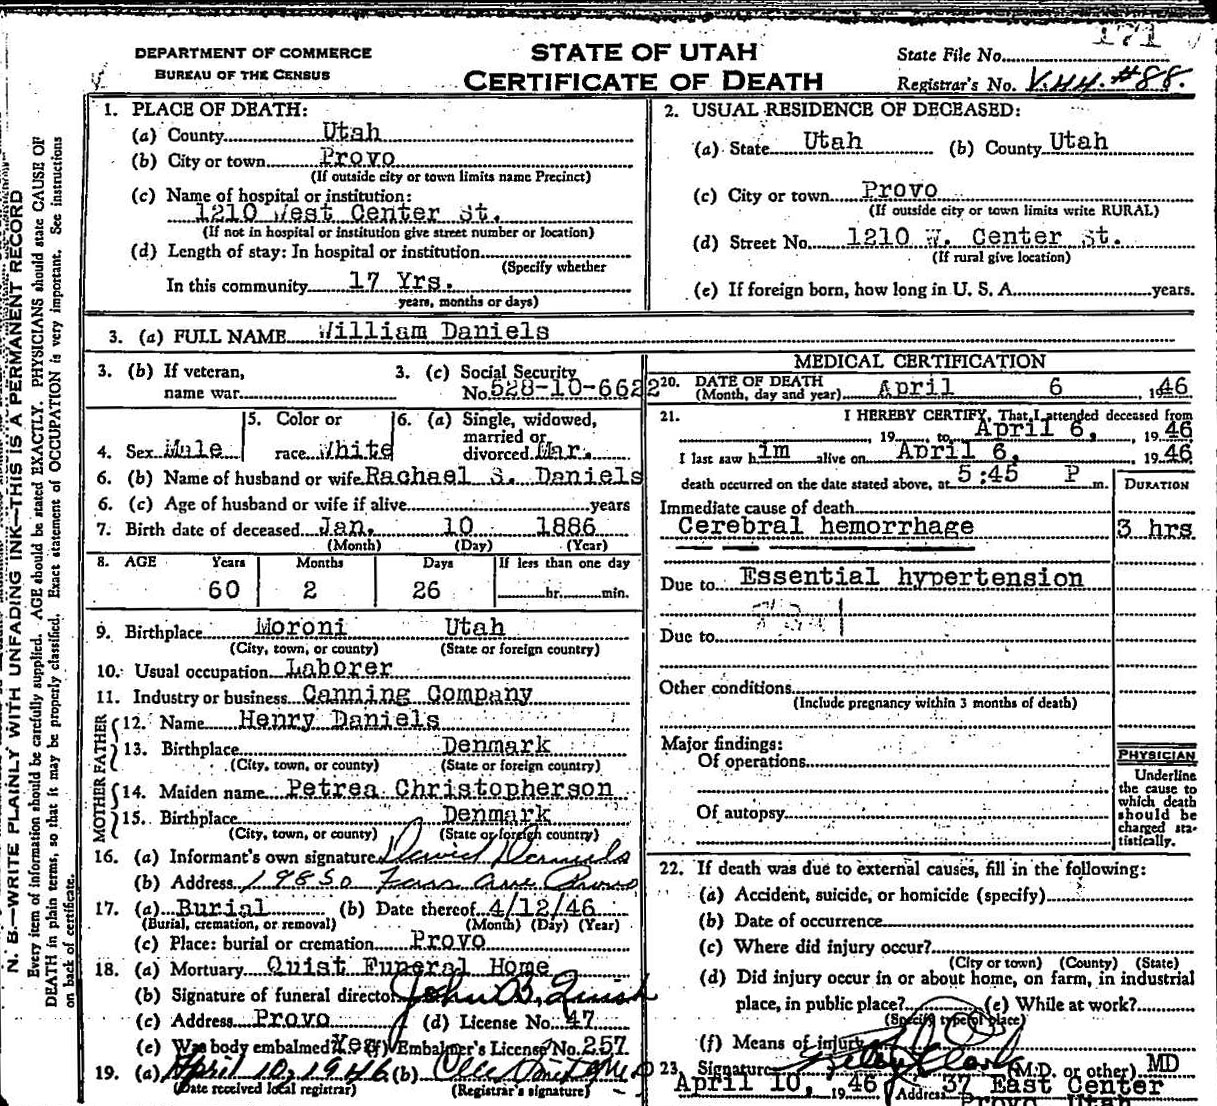 171
DEPARTMENT OF COMMERCE
BUREAU OF THE CENSUS
STATE OF UTAH
CERTIFICATE OF DEATH
State File No.
Registrar's No. V.H.H. #88.
N. B.—WRITE PLAINLY WITH UNFADING INK—THIS IS A PERMANENT RECORD
Every item of information should be carefully supplied. AGE should be stated EXACTLY. PHYSICIANS should state CAUSE OF
DEATH in plain terms, so that it may be properly classified. Exact statement of OCCUPATION is very important. See instructions
on back of certificate.
1. PLACE OF DEATH:
(a) County Utah
(b) City or town Provo
(If outside city or town limits name Precinct)
(c) Name of hospital or institution:
1210 West Center St.
(If not in hospital or institution give street number or location)
(d) Length of stay: In hospital or institution
(Specify whether
In this community 17 Yrs.
years, months or days)
2. USUAL RESIDENCE OF DECEASED:
(a) State Utah (b) County Utah
(c) City or town Provo
(If outside city or town limits write RURAL)
(d) Street No. 1210 W. Center St.
(If rural give location)
(e) If foreign born, how long in U. S. A. years.
3. (a) FULL NAME William Daniels
3. (b) If veteran,
name war
3. (c) Social Security
No. 528-10-6622
4. Sex Male
5. Color or
race White
6. (a) Single, widowed,
married or
divorced Mar.
6. (b) Name of husband or wife Rachael S. Daniels
6. (c) Age of husband or wife if alive years
7. Birth date of deceased Jan. 10 1886
(Month) (Day) (Year)
8. AGE Years Months Days If less than one day
60 2 26 hr. min.
9. Birthplace Moroni Utah
(City, town, or county) (State or foreign country)
10. Usual occupation Laborer
11. Industry or business Canning Company
FATHER
12. Name Henry Daniels
13. Birthplace Denmark
(City, town, or county) (State or foreign country)
MOTHER
14. Maiden name Petrea Christopherson
15. Birthplace Denmark
(City, town, or county) (State or foreign country)
16. (a) Informant's own signature David Daniels
(b) Address Provo
17. (a) Burial (b) Date thereof 4/12/46
(Burial, cremation, or removal) (Month) (Day) (Year)
(c) Place: burial or cremation Provo
18. (a) Mortuary Quist Funeral Home
(b) Signature of funeral director John B. Quist
(c) Address Provo (d) License No. 47
(e) Was body embalmed Yes (f) Embalmer's License No. 257
19. (a) April 10, 1946 (b)
(Date received local registrar) (Registrar's signature)
MEDICAL CERTIFICATION
20. DATE OF DEATH
(Month, day and year) April 6 , 1946
21. I HEREBY CERTIFY, That I attended deceased from
, 19 , to April 6, , 1946
I last saw him alive on April 6, , 1946
death occurred on the date stated above, at 5:45 P m.
DURATION
Immediate cause of death
Cerebral hemorrhage 3 hrs
Due to Essential hypertension
Due to
Other conditions
(Include pregnancy within 3 months of death)
Major findings:
Of operations
Of autopsy
PHYSICIAN
Underline
the cause to
which death
should be
charged sta-
tistically.
22. If death was due to external causes, fill in the following:
(a) Accident, suicide, or homicide (specify)
(b) Date of occurrence
(c) Where did injury occur?
(City or town) (County) (State)
(d) Did injury occur in or about home, on farm, in industrial
place, in public place? (e) While at work?
(Specify type of place)
(f) Means of injury
23. Signature (M.D. or other) MD
April 10, , 1946 Address 37 East Center
Provo Utah